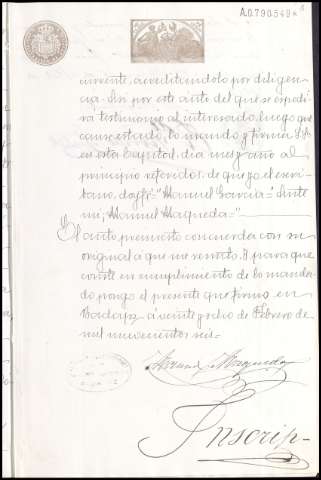 A.0.790.549 *
curvente, acreditandolo por diligen-
cia. Asi por este auto del que se espedi-
ra testimonio al interesado luego que
cause estado, lo mando y firma S.S.
en esta Capital, dia mes y año al
principio referidos, de que yo el escri-
bano, doy fé.= "Manuel Garcia"= Ante
mi, Manuel Maqueda="
El auto preinserto concuerda con su
original a que me remito. Y para que
conste en cumplimiento de lo manda-
do pongo el presente que firmo en
Badajoz á veinte y ocho de Febrero de
mil novecientos seis.=
Manuel Maqueda
Inscrip-